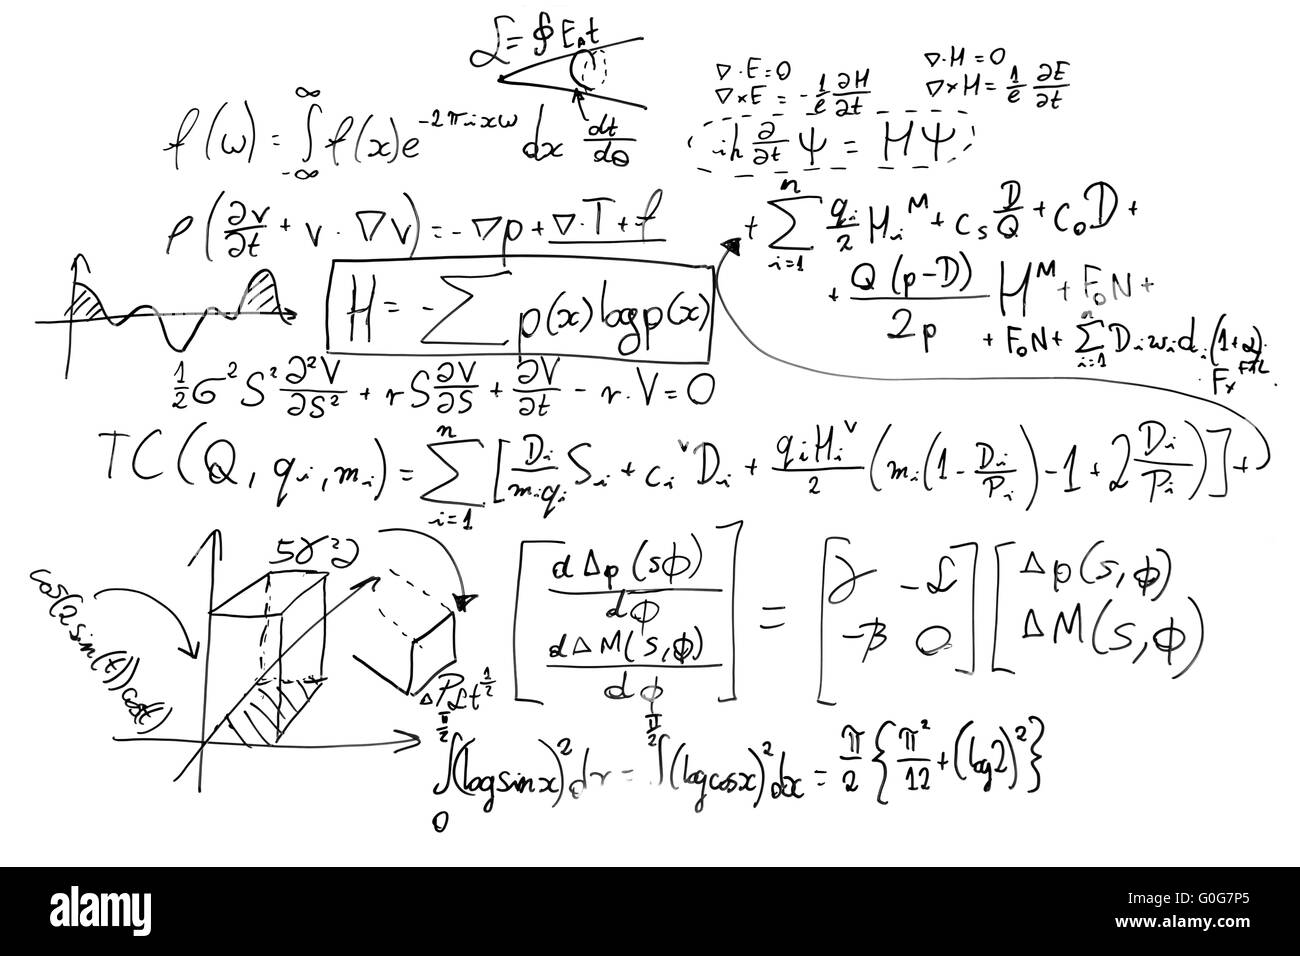 ℒ = ∮ E_A t
∇·E = 0
∇×E = -1/e ∂H/∂t
∇·H = 0
∇×H = 1/e ∂E/∂t
f(ω) = ∫_{-∞}^{∞} f(x)e^{-2πixω} dx
dt/dθ
iħ ∂/∂t Ψ = HΨ
ρ(∂v/∂t + v·∇v) = -∇p + ∇·T + f
+ Σ_{i=1}^{n} q_i/2 H_i^M + c_s D/Q + c_o D +
+ Q(p-D)/2p H^M + F_o N +
+ F_o N + Σ_{i=1}^{n} D_i w_i d_i (1+α)
H = -Σ p(x) log p(x)
1/2 σ² S² ∂²V/∂S² + rS ∂V/∂S + ∂V/∂t - r·V = 0
TC(Q, q_i, m_i) = Σ_{i=1}^{n} [D_i/(m_i q_i) S_i + c_i^v D_i + q_i H_i^v/2 (m_i(1 - D_i/P_i) - 1 + 2 D_i/P_i)] +
cos(2sin(t))cos(t)
[dΔp(s,ϕ)/dϕ
dΔM(s,ϕ)/dϕ] = [γ -ℒ
-β 0] [Δp(s,ϕ)
ΔM(s,ϕ)]
∫_0^{π/2} (log sin x)² dx = ∫^{π/2} (log cos x)² dx = π/2 {π²/12 + (log 2)²}
alamy
Image ID: G0G7P5
www.alamy.com